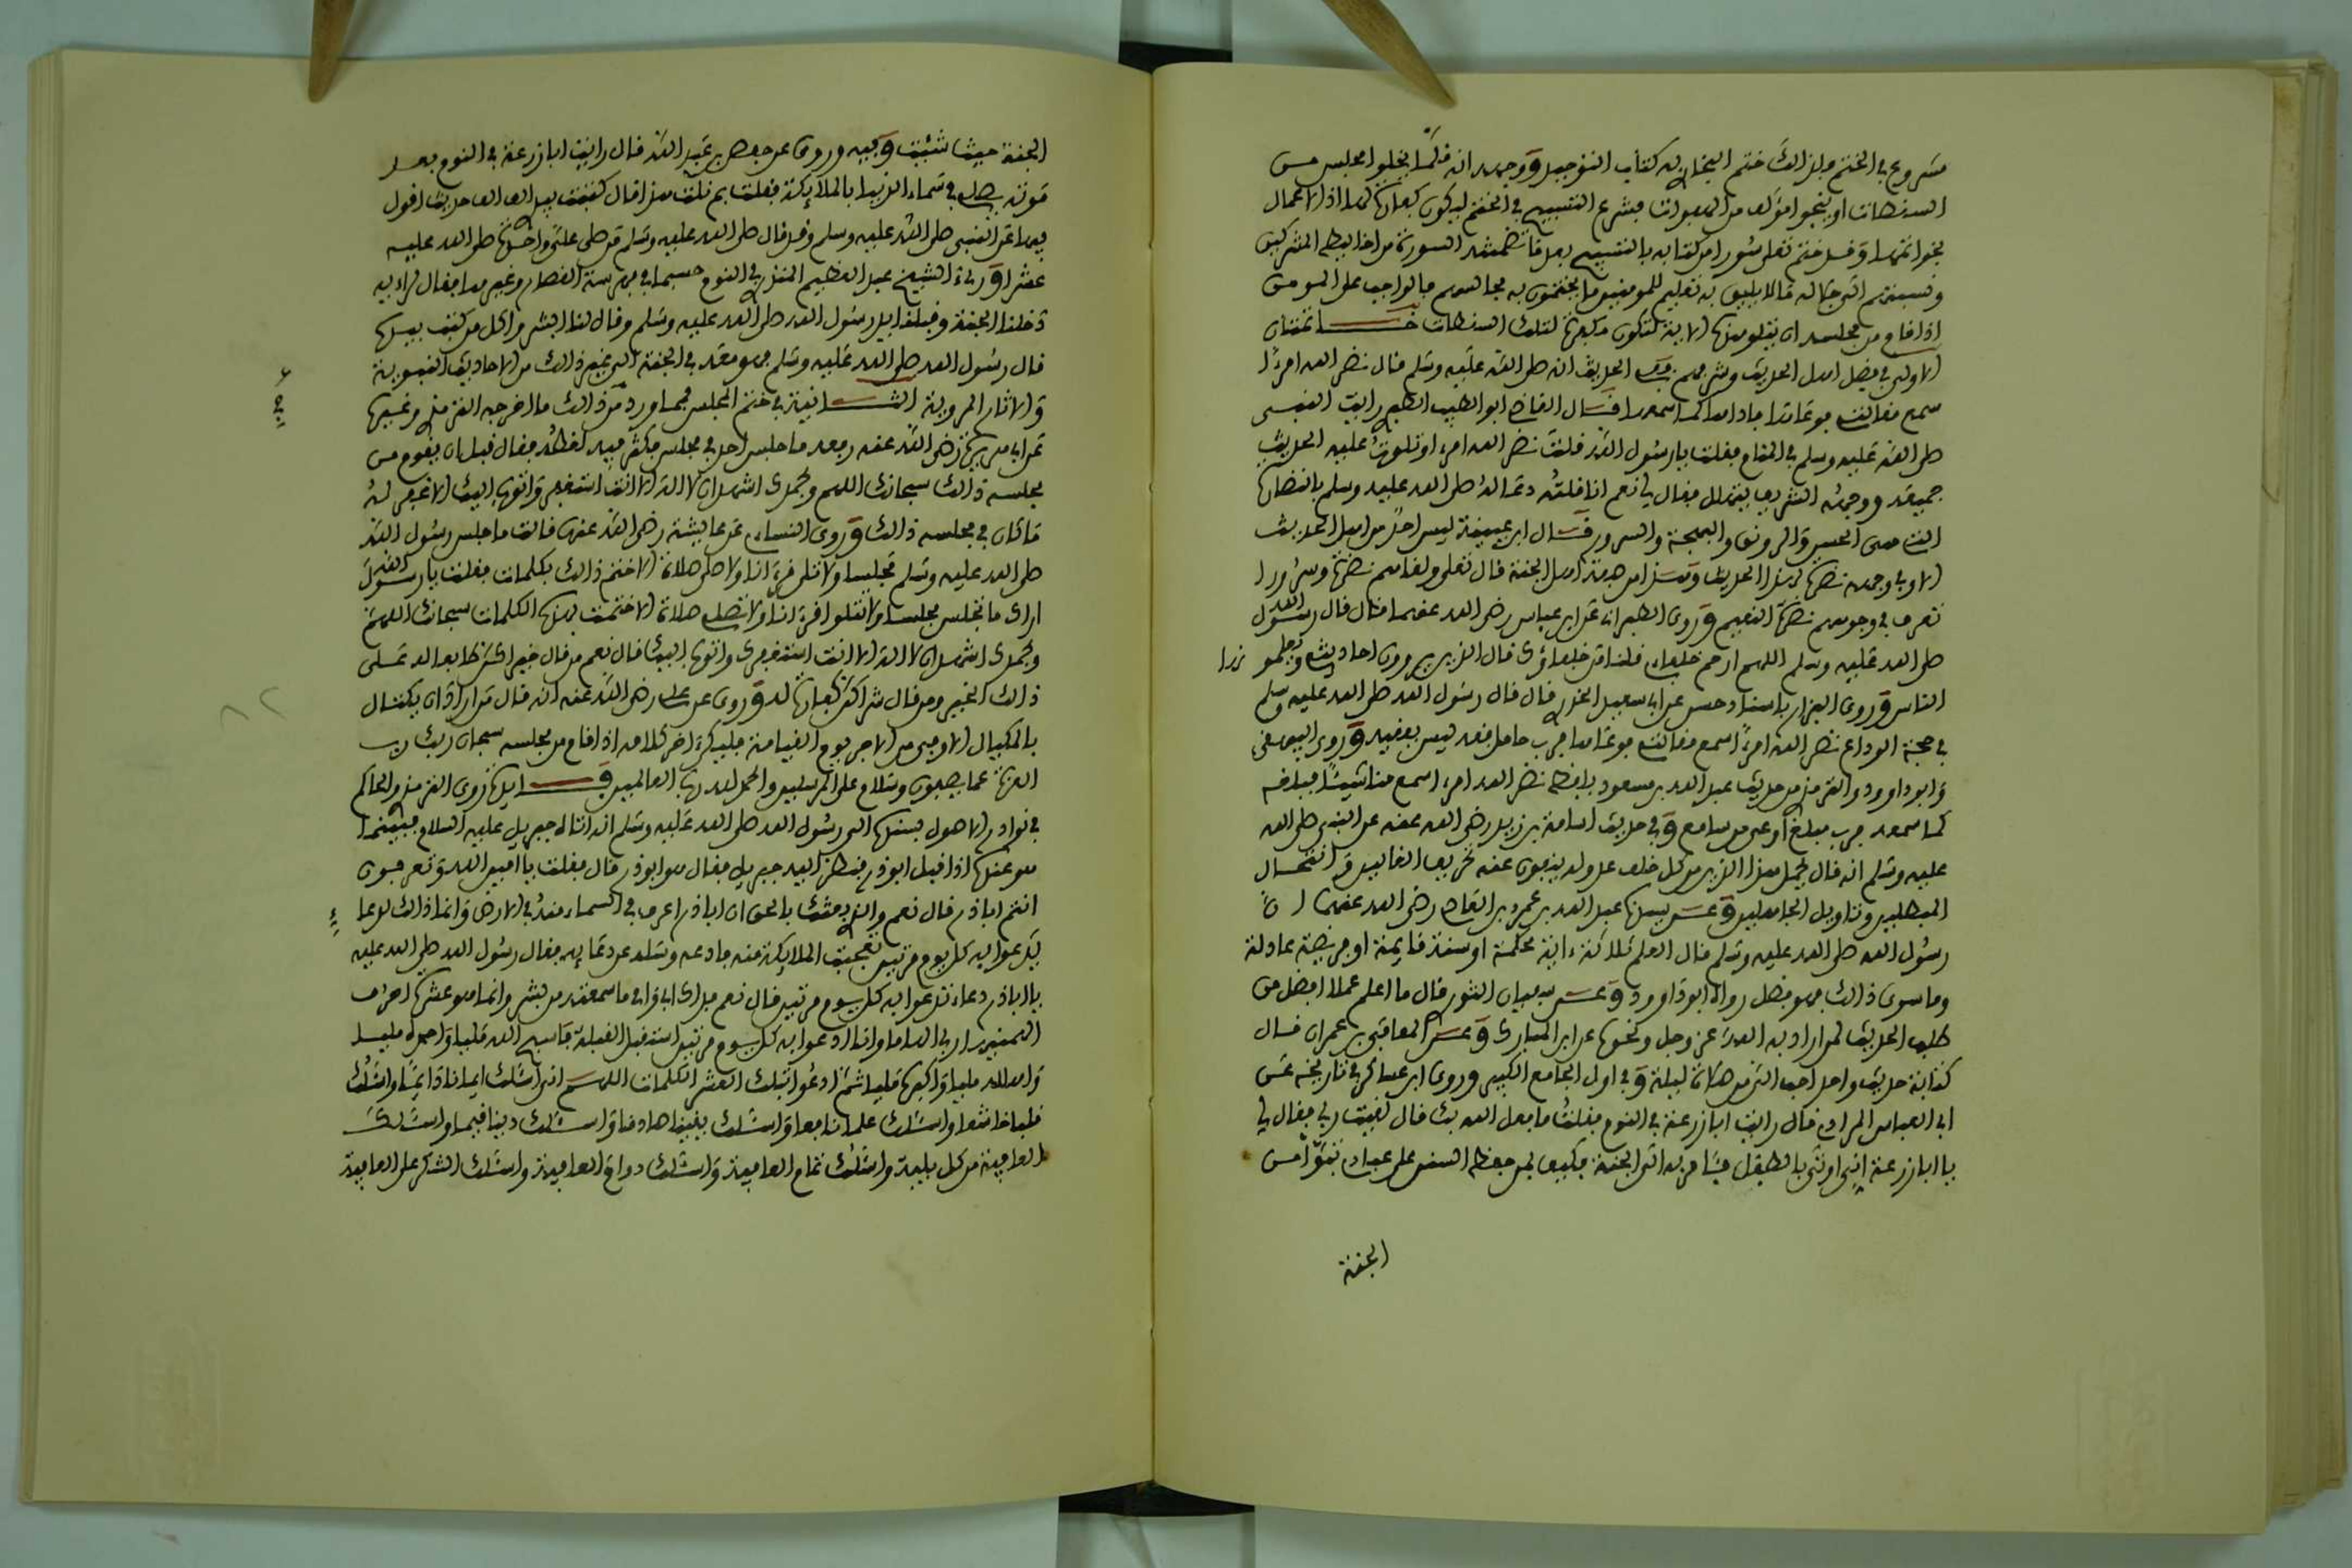 مشروع في الختم ولذلك ختم البخاري به كتاب التوحيد ووجهه انه قلما يخلوا مجلس من
السقطات او ينجوا مؤلف من الهفوات فشرع التسبيح في الختم ليكون كفارة لهذا اذ الاعمال
بخواتمها وقد ختم تعلى سورا من كتابه بالتسبيح بعد ما تضمنته السورة من اخاليط المشركين
ونسبتهم الى جلاله ما لا يليق به تعليم للمومنين ما يختمون به مجالسهم فالواجب على المومن
اذا قام من مجلسه ان يتلو هذه الاية لتكون مكفرة لتلك السقطات خاتمتان
الاولى في فضل اهل الحديث وشرفهم ففي الحديث انه صلى الله عليه وسلم قال نضر الله امرءا
سمع مقالتي فوعاها فاداها كما سمعها قال القاضي ابو الطيب الطبري رايت النبي
صلى الله عليه وسلم في المنام فقلت يا رسول الله قلت نضر الله امرءا وتلوت عليه الحديث
جميعه ووجهه الشريف يتهلل فقال لي نعم انا قلته دعا له صلى الله عليه وسلم بالنضارة
التي هي الحسن والرونق والبهجة والسرور قال ابن عيينة ليس احد من اهل الحديث
الا وفي وجهه نضرة لهذا الحديث وهذا من هيئة اهل الجنة قال تعلى ولقاهم نضرة وسرورا
تعرف في وجوههم نضرة النعيم وروى الطبراني عن ابن عباس رضي الله عنهما قال قال رسول الله
صلى الله عليه وسلم اللهم ارحم خلفاءي قلنا من خلفاؤك قال الذين يروون احاديثي ويعلمونها
الناس وروى البزار باسناد حسن عن ابي سعيد الخدري قال قال رسول الله صلى الله عليه وسلم
في حجة الوداع نضر الله امرءا سمع مقالتي فوعاها فرب حامل فقه ليس بفقيه وروى البيهقي
وابو داوود والترمذي من حديث عبد الله بن مسعود بلفظ نضر الله امرءا سمع منا شيئا فبلغه
كما سمعه فرب مبلغ اوعى من سامع وفي حديث اسامة بن زيد رضي الله عنه عن النبي صلى الله
عليه وسلم انه قال يحمل هذا الدين من كل خلف عدوله ينفون عنه تحريف الغالين وانتحال
المبطلين وتاويل الجاهلين وعن سيدنا عبد الله بن عمرو بن العاص رضي الله عنهما ان
رسول الله صلى الله عليه وسلم قال العلم ثلاثة ءاية محكمة او سنة قايمة او فريضة عادلة
وما سوى ذلك فهو فضل رواه ابو داوود وعن سفيان الثوري قال ما اعلم عملا افضل من
طلب الحديث لمن اراد به الله عز وجل ونحوه عن ابن المبارك وعن المعافى بن عمران قال
كتابة حديث واحد احب الي من صلاة ليلة وفي اول الجامع الكبير وروى ابن عساكر في تاريخه عن
ابي العباس المرادي قال رايت ابا زرعة في النوم فقلت ما فعل الله بك قال لقيت ربي فقال لي
يا ابا زرعة اني اوتى بالطفل فئامر به الى الجنة فكيف بمن حفظ السنن على عبادي تبوأ من
الجنة
الجنة حيث شئت وفيه وروى عن حفص بن عبد الله قال رايت ابا زرعة في النوم بعد
موته يصلي في سماء الدنيا بالملائكة فقلت بم نلت هذا قال كتبت بيدي الف الف حديث اقول
فيها عن النبي صلى الله عليه وسلم وقد قال صلى الله عليه وسلم من صلى علي واحدة صلى الله عليه
عشرا ورئي الشيخ عبد العظيم المنذري في النوم
دخلنا الجنة وقبلنا يد رسول الله صلى الله عليه وسلم وقال لنا ابشروا كل من كتب بيده
قال رسول الله صلى الله عليه وسلم فهو معه في الجنة الى غير ذلك من الاحاديث النبوية
والاثار المروية الثانية في ختم المجلس فمما ورد من ذلك ما اخرجه الترمذي وغيره
عن ابي هريرة رضي الله عنه رفعه ما جلس احد في مجلس فكثر فيه لغطه فقال قبل ان يقوم من
مجلسه ذلك سبحانك اللهم وبحمدك اشهد ان لا اله الا انت استغفرك واتوب اليك الا غفر له
ما كان في مجلسه ذلك وروى النساءي عن عايشة رضي الله عنها قالت ما جلس رسول الله
صلى الله عليه وسلم مجلسا ولا تلى قرءانا ولا صلى صلاة الا ختم ذلك بكلمات فقلت يا رسول الله
اراك ما تجلس مجلسا ولا تتلوا قرءانا ولا تصلي صلاة الا ختمت بهذه الكلمات سبحانك اللهم
وبحمدك اشهد ان لا اله الا انت استغفرك واتوب اليك قال نعم من قال خيرا كن طابعا له على
ذلك الخير ومن قال شرا كن كفارة له وروى عن علي رضي الله عنه انه قال من اراد ان يكتال
بالمكيال الاوفى من الاجر يوم القيامة فليكن ءاخر كلامه اذا قام من مجلسه سبحان ربك رب
العزة عما يصفون وسلام على المرسلين والحمد لله رب العالمين فايدة روى الترمذي الحاكم
في نوادر الاصول بسنده الى رسول الله صلى الله عليه وسلم انه اتاه جبريل عليه السلام فبينما
هو عنده اذ اقبل ابو ذر فنظر اليه جبريل فقال هو ابو ذر قال فقلت يا امين الله وتعرفون
انتم ابا ذر قال نعم والذي بعثك بالحق ان ابا ذر اعرف في السماء منه في الارض وانما ذلك لدعاء
يدعوا به كل يوم مرتين تعجبت الملائكة منه فادعه وسله عن دعائه فقال رسول الله صلى الله عليه
يا ابا ذر دعاء تدعوا به كل يوم مرتين قال نعم فداك ابي وامي ما سمعته من بشر وانما هو عشرة احرف
الهمنيهن ربي الهاما وانا ادعوا به كل يوم مرتين استقبل القبلة فاسبح الله مليا واحمده مليا
واهلله مليا واكبره مليا ثم ادعوا بتلك العشر الكلمات اللهم اني اسئلك ايمانا دايما واسئلك
قلبا خاشعا واسئلك علما نافعا واسئلك يقينا صادقا واسئلك دينا قيما واسئلك
العافية من كل بلية واسئلك تمام العافية واسئلك دوام العافية واسئلك الشكر على العافية